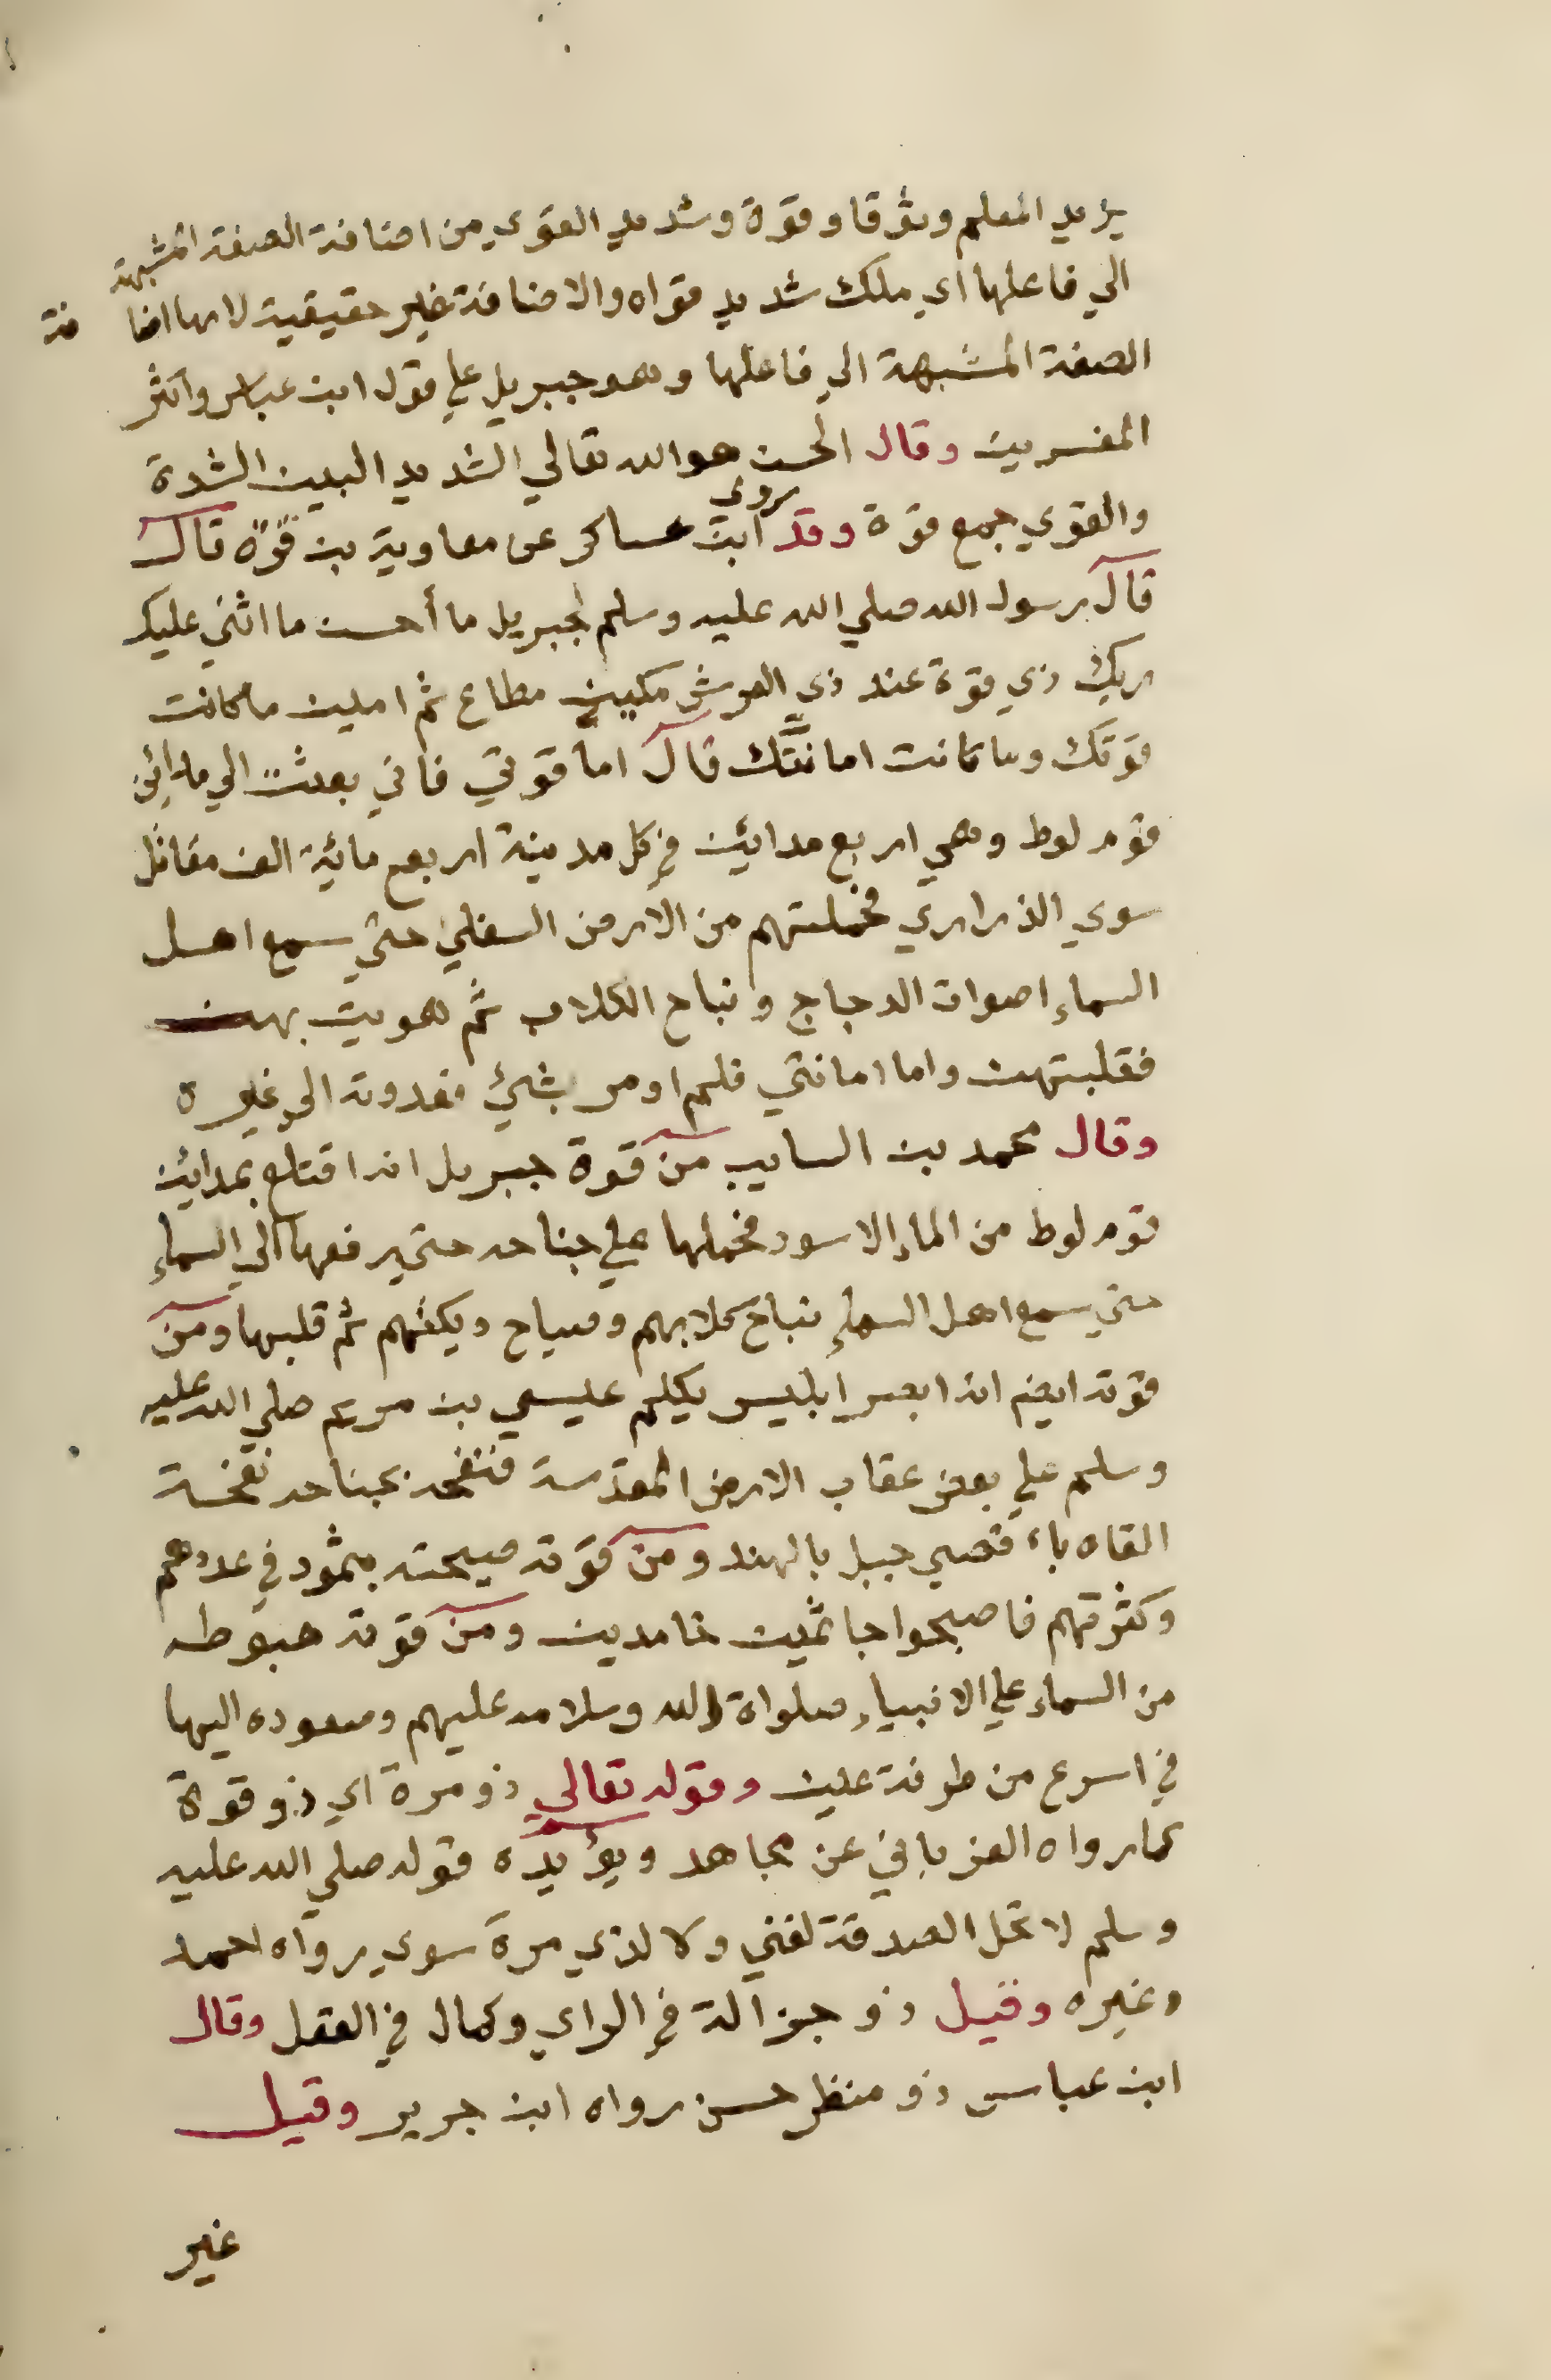 يزيد المعلم وثوقا وقوة وشديد القوي من اضافة الصفة المشبهة
الي فاعلها اي ملك شديد قواه والاضافة غير حقيقية لانها اضافة
الصفة المشبهة الي فاعلها وهو جبريل علي قول ابن عباس واكثر
المفسرين وقال الحسن هو الله تعالي الشديد البين الشدة
والقوي جمع قوة وقد روي ابن عساكر عن معاوية بن قوة قال
قال رسول الله صلي الله عليه وسلم لجبريل ما أحسن ما اثني عليك
ربك ذي قوة عند ذي العرش مكين مطاع ثم امين ما كانت
قوتك وما كانت امانتك قال اما قوتي فاني بعثت الي مدائن
قوم لوط وهي اربع مدائن في كل مدينة اربع مائية الف مقاتل
سوي الذراري فحملتهم من الارض السفلي حتي سمع اهل
السماء اصوات الدجاج ونباح الكلاب ثم هويت بهن
فقلبتهن واما امانتي فلم اومر بشئ فعدوته الي غيره
وقال محمد بن السايب من قوة جبريل انه اقتلع بمدائن
قوم لوط من الماء الاسود فحملها علي جناحه حتي رفعها الي السماء
حتي سمع اهل السماء نباح كلابهم وصياح ديكتهم ثم قلبها ومن
قوته ايضا انه ابصر ابليس يكلم عليسي بن مريم صلي الله عليه
وسلم علي بعض عقاب الارض المقدسة فنفحه بجناحه نفحة
القاه باء قصي جبل بالهند ومن قوته صيحته بثمود في عددهم
وكثرتهم فاصبحوا جاثمين خامدين ومن قوته هبوطه
من السماء علي الانبياء صلواة الله وسلامه عليهم وصعوده اليها
في اسرع من طرفة عين وقوله تعالي ذو مرة اي ذو قوة
كما رواه الفريابي عن مجاهد ويؤيده قوله صلي الله عليه
وسلم لا تحل الصدقة لغني ولا لذي مرة سوي رواه احمد
وغيره وقيل ذو جزالة في الراي وكمال في العقل وقال
ابن عباس ذو منظر حسن رواه ابن جرير وقيل
غير